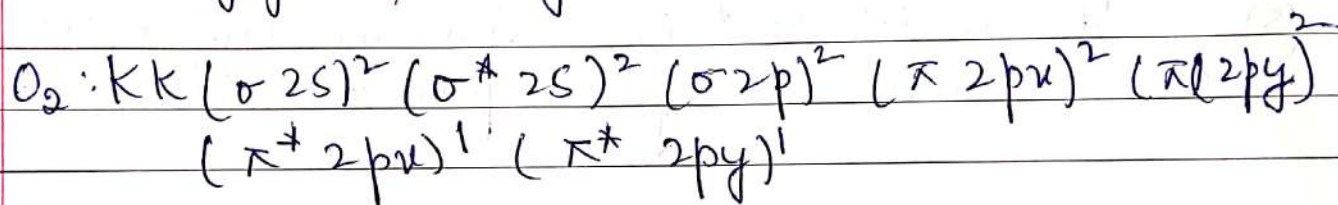 O₂ : KK (σ 2S)² (σ* 2S)² (σ2p)² (π 2px)² (π(2py)²
(π* 2px)¹ (π* 2py)¹